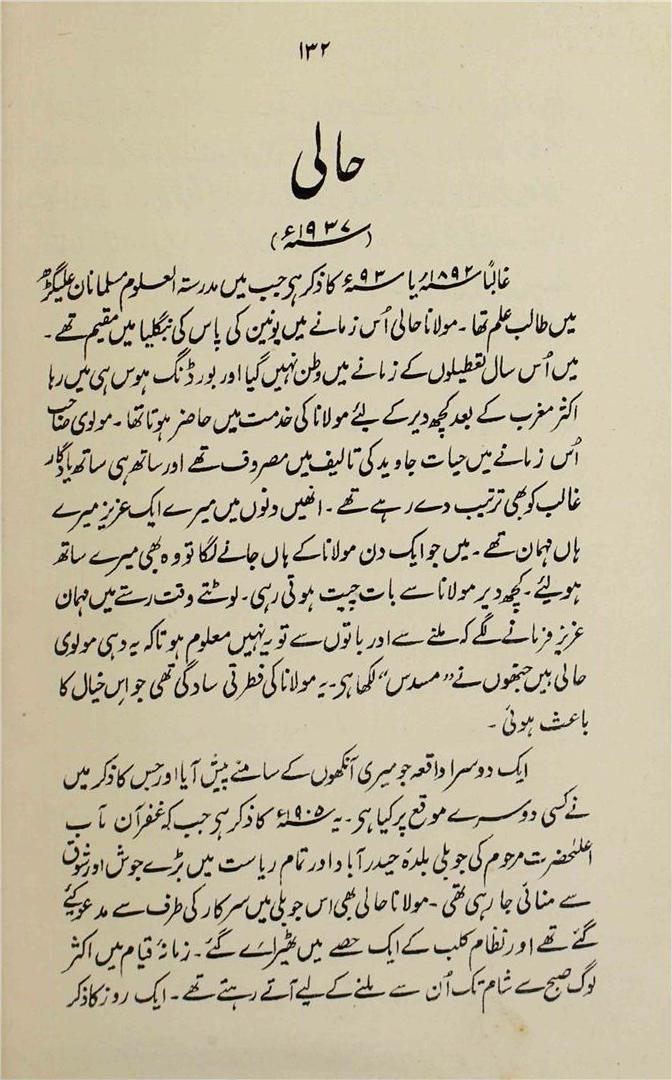 ۱۳۲
حالی
(۱۹۳۷ء)
غالباً ۱۸۹۲ء یا ۹۳ء کا ذکر ہی جب میں مدرستہ العلوم مسلمانان علیگڑھ
میں طالب علم تھا ۔ مولانا حالی اُس زمانے میں یونین کی پاس کی بنگلیا میں مقیم تھے ۔
میں اُس سال تعطیلوں کے زمانے میں وطن نہیں گیا اور بورڈنگ ہوس ہی میں رہا
اکثر مغرب کے بعد کچھ دیر کے لئے مولانا کی خدمت میں حاضر ہوتا تھا ۔ مولوی صاحب
اُس زمانے میں حیات جاوید کی تالیف میں مصروف تھے اور ساتھ ہی ساتھ یادگار
غالب کو بھی ترتیب دے رہے تھے ۔ انھیں دنوں میں میرے ایک عزیز میرے
ہاں مہمان تھے ۔ میں جو ایک دن مولانا کے ہاں جانے لگا تو وہ بھی میرے ساتھ
ہولیئے ۔ کچھ دیر مولانا سے بات چیت ہوتی رہی ۔ لوٹتے وقت رستے میں مہمان
عزیز فرمانے لگے کہ ملنے سے اور باتوں سے تو یہ نہیں معلوم ہوتا کہ یہ وہی مولوی
حالی ہیں جنھوں نے ”مسدس“ لکھا ہی ۔ یہ مولانا کی فطرتی سادگی تھی جو اِس خیال کا
باعث ہوئی ۔
ایک دوسرا واقعہ جو میری آنکھوں کے سامنے پیش آیا اور جس کا ذکر میں
نے کسی دوسرے موقع پر کیا ہی ۔ یہ ۱۹۰۵ء کا ذکر ہی جب کہ غفرآن مآب
اعلیٰحضرت مرحوم کی جوبلی بلدۂ حیدرآباد اور تمام ریاست میں بڑے جوش اور شوق
سے منائی جا رہی تھی ۔ مولانا حالی بھی اس جوبلی میں سرکار کی طرف سے مدعو کیئے
گئے تھے اور نظام کلب کے ایک حصے میں ٹھیرائے گئے ۔ زمانۂ قیام میں اکثر
لوگ صبح سے شام تک اُن سے ملنے کے لیے آتے رہتے تھے ۔ ایک روز کا ذکر